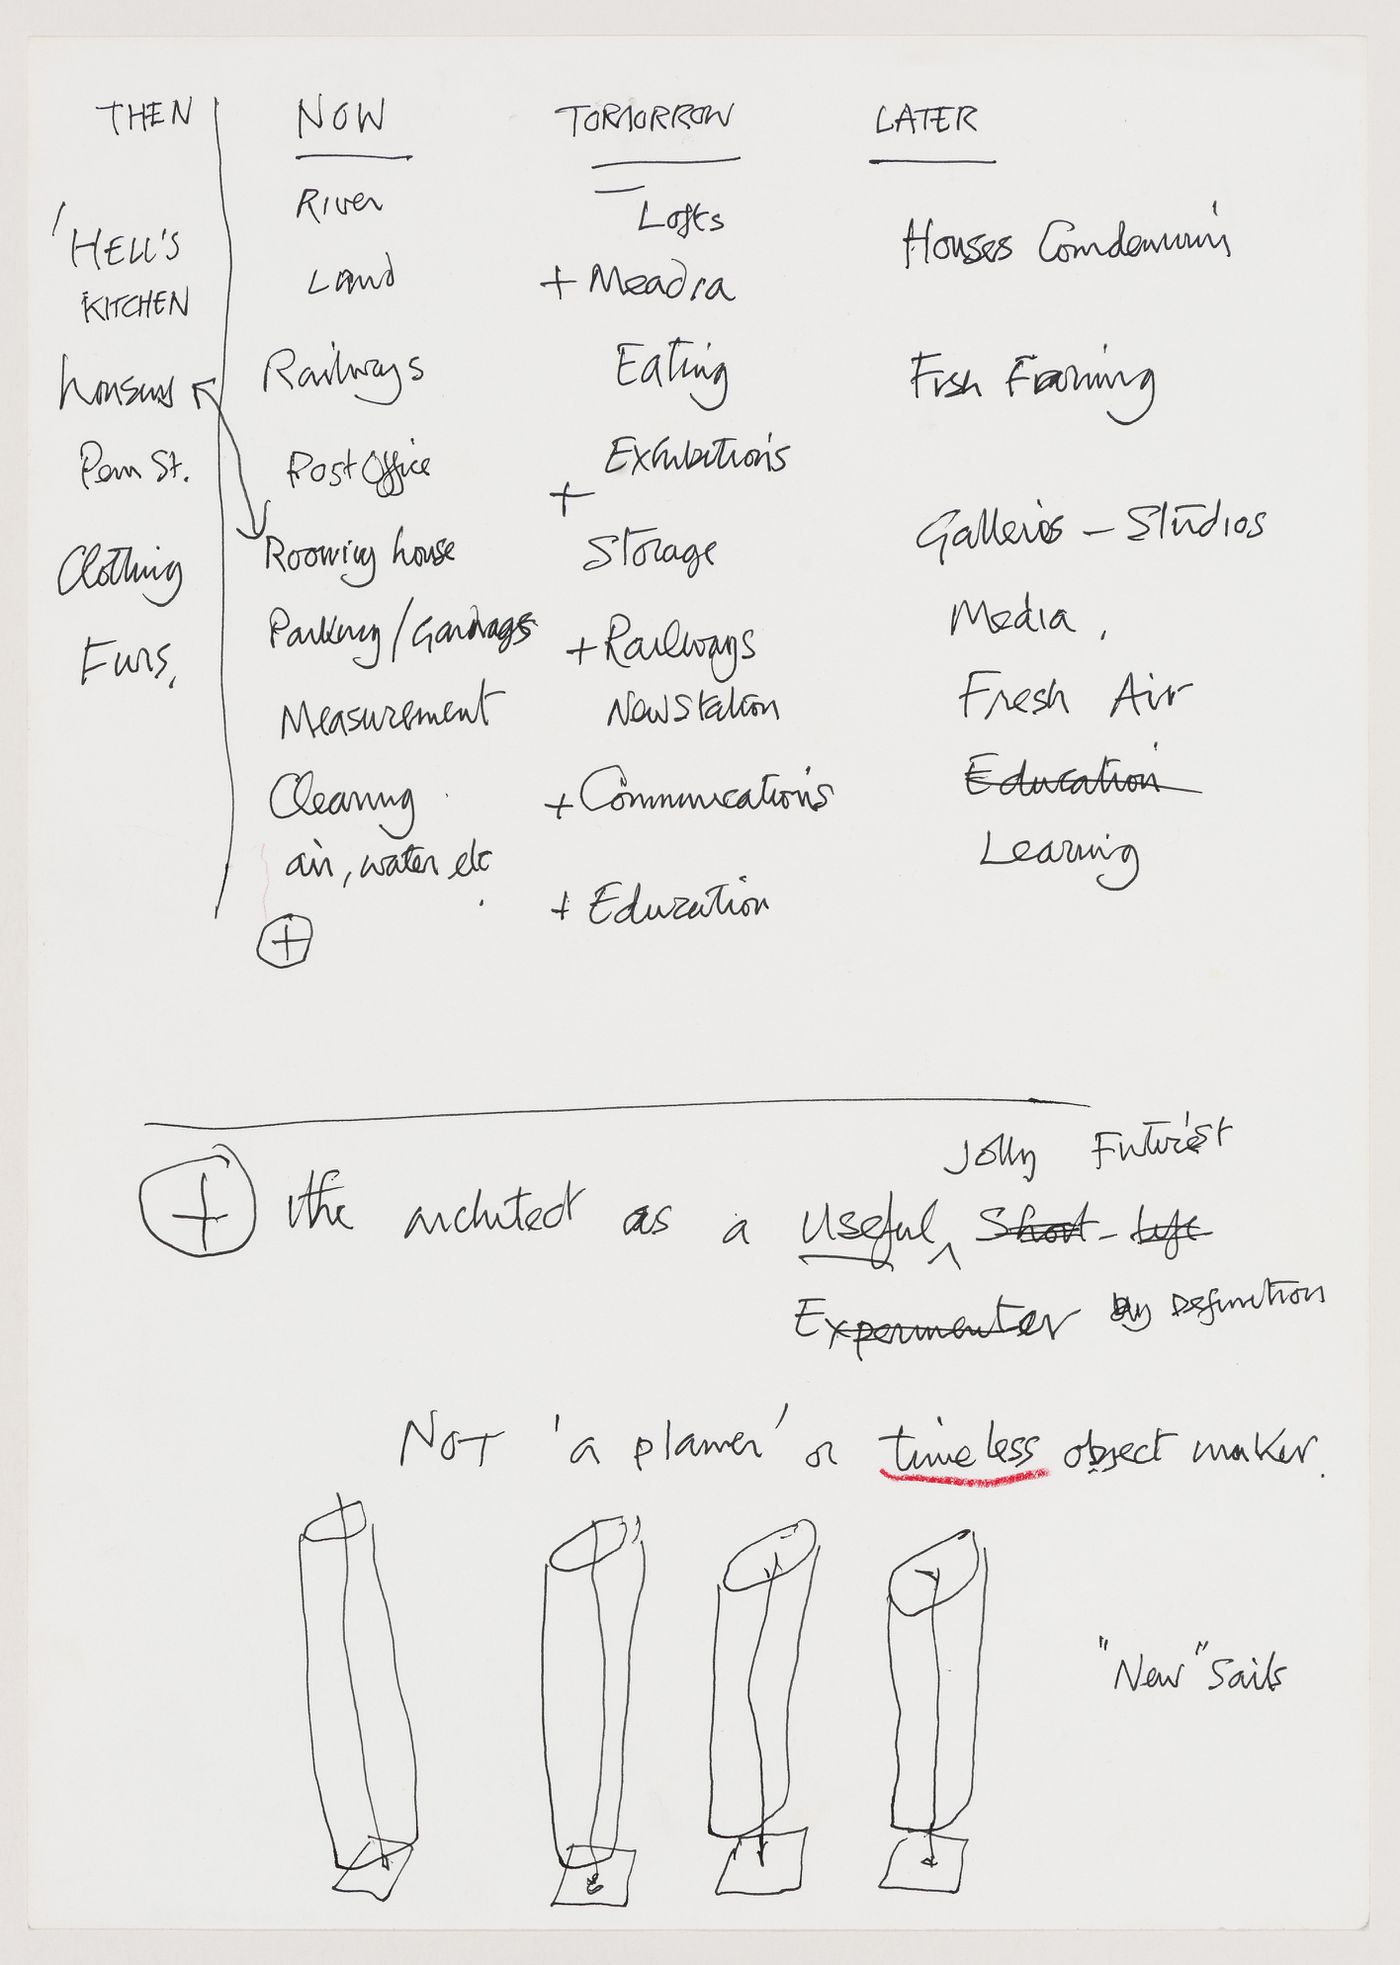 THEN
'HELL'S
KITCHEN
housing
Penn St.
Clothing
Furs,
NOW
River
Land
Railways
Post Office
Rooming house
Parking / Garbages
Measurement
Cleaning
air, water etc.
+
TOMORROW
Lofts
+ Meadia
Eating
Exhibitions
+
Storage
+ Railways
New Station
+ Communications
+ Education
LATER
Houses
Fish Farming
Galleries – Studios
Media,
Fresh Air
Education
Learning
Jolly Futurist
+ the architect as a useful ^ Short - Life
Expermenter by Definition
NOT 'a planner' or timeless object maker.
"New" Sails